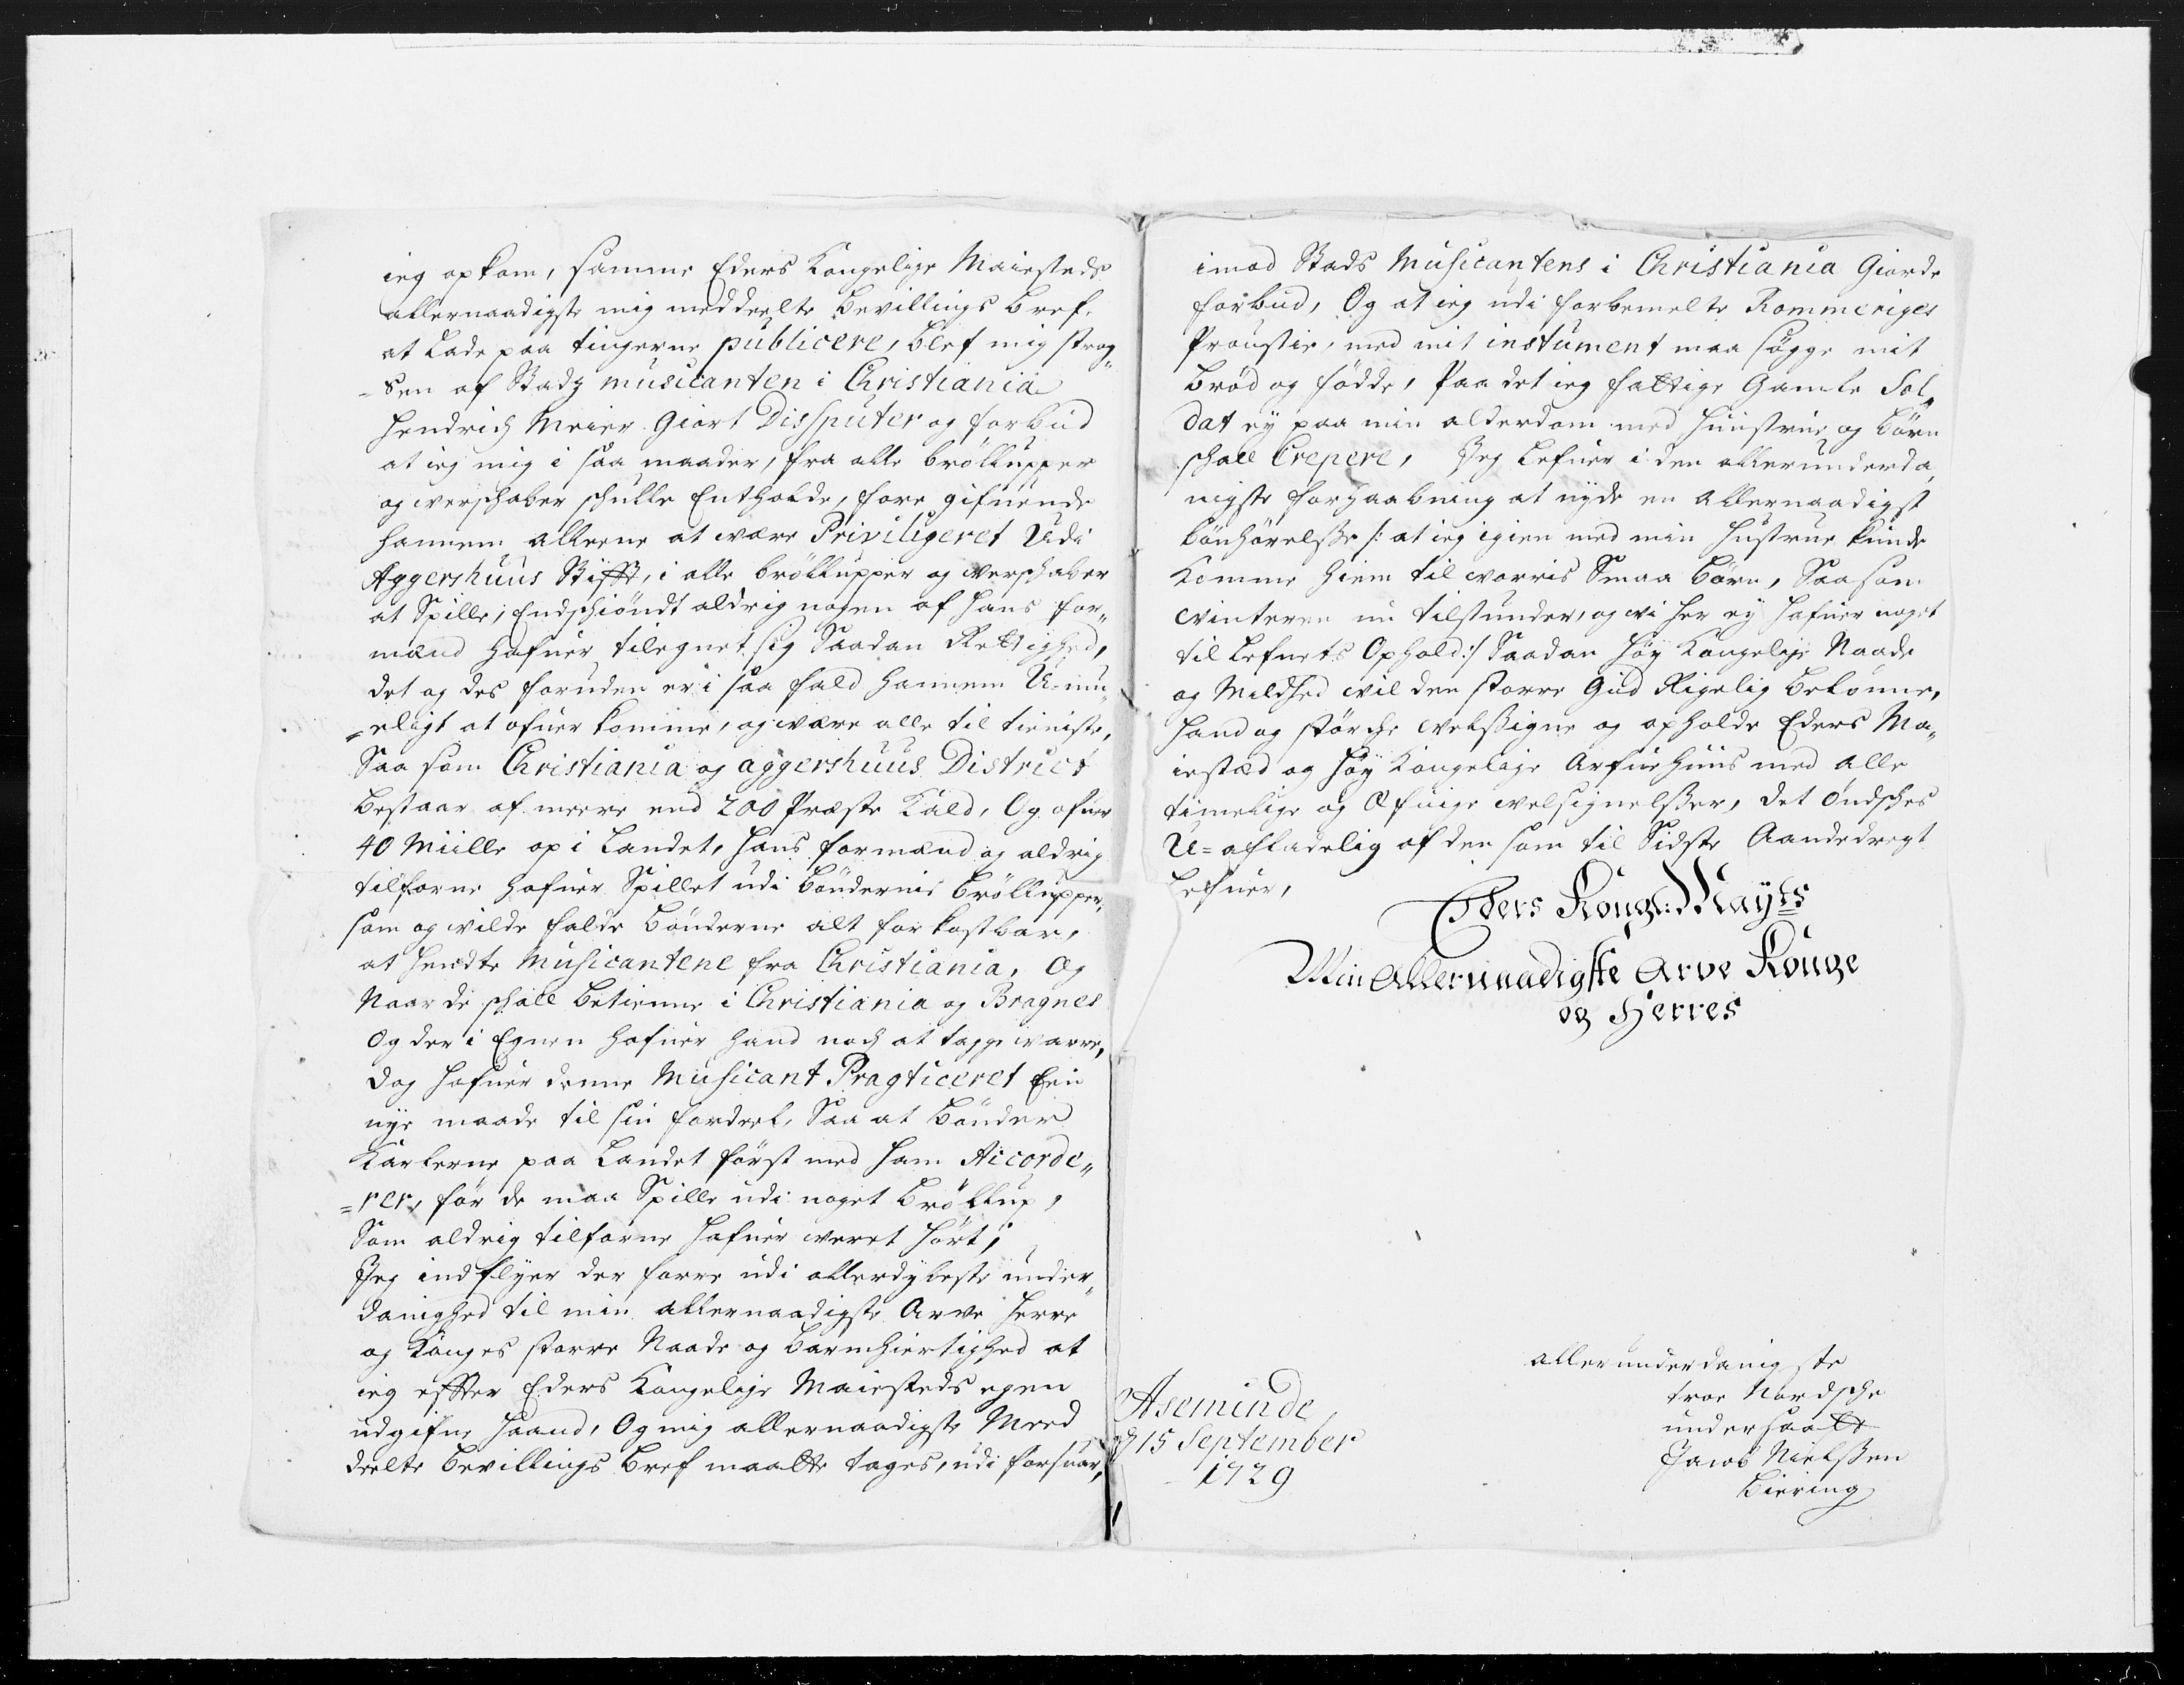 ieg opkom, samme Eders Kongelige Maiesteds
allernaadigste mig meddeelte Bevillings bref.
at Lade paa tingerne publicere, blef mig strag„
=sen af Stads musicanten i Christiania
Hendrich Meier Giort Dissputer og forbud
at ieg mig i saa maader, fra alle bröllupper
og werschaber schulle Entholde, fore gifuende
hannem allene at være Priviligeret Udi
Aggershuus Stifft, i alle bröllupper og werschaber
at Spille, Endschiöndt aldrig nogen af hans for„
mænd hafuer tilegnet sig Saadan Rettighed,
det og des foruden er i saa fald hannem U-mu„
=eligt at ofuer komme, og være alle til tieniste,
Saa som Christiania og aggershuus District
bestaar af meere end 200 Præste Kald, Og ofuer
40 Miille op i Landet, hans formænd og aldrig
tilforne hafuer Spillet udi böndernis bröllupper,
som og vilde falde bönderne alt for kostbar,
at hendte Musicantene fra Christiania, og
Naar de schall betienne i Christiania og Bragnes
Og der i Egnen hafuer hand noch at tagge ware,
dog hafuer denne Musicant Pragticeret Een
nye maade til sin fordeel, Saa at bönder
Karlerne paa Landet först med ham Accorde„
=rer, för de maa Spille udi noget bröllup,
Som aldrig tilforne hafuer weret hört;
Jeg indflyer der forre udi allerdybeste under„
danighed til min allernaadigste Arve Herre
og Konges storre Naade og barmhiertighed at
ieg effter Eders Kongelige Maiesteds egen
udgifne haand, Og mig allernaadigste Meed
deelte Bevillings Bref maatte tages, udi forsuar,
imod Stads Musicantens i Christiania Giorde
forbud, Og at ieg udi forbemelte Rommeriges
Proustie, med mit instument maa søgge mit
bröd og födde, Paa det ieg fattige Gamle Sol„
dat ey paa min alderdom med Huustrue og börn
schall Crepere, Jeg Lefuer i den allerunderda„
nigste forhaabning at nyde en Allernaadigst
bönhörelsse /: at ieg igien med min Hustrue kunde
Komme hiem til worris Smaa börn, Saasom
winteren nu tilstunder, og wi her ey hafuer noget
til Lefnets Ophold :/ Saadan höy Kongelige Naade
og Mildhed wil den storre Gud Rigelig belönne,
hand og störche welssigne og opholde Eders Ma„
iestæd og höy Kongelige Arfuehuus med alle
timelige og Æfuige welsignelsser, det öndsches
U=afladelig af den som til Sidste Aandedregt
Lefuer,
Eders Kongl: Mayts
Min Allernaadigste Arve Konge
og Herres
allerunderdanigste
troe Nordsche
undersaatt
Jacob Nielssen
Biering
Aseminde
d 15 September
1729